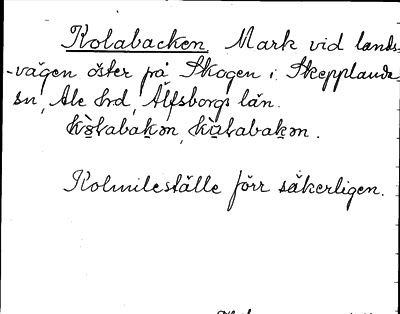 Kolabacken Mark vid lands-
-vägen öster på Skogen i Skepplanda
sn, Ale hrd, Älfsborgs län.
Kolmileställe förr säkerligen.